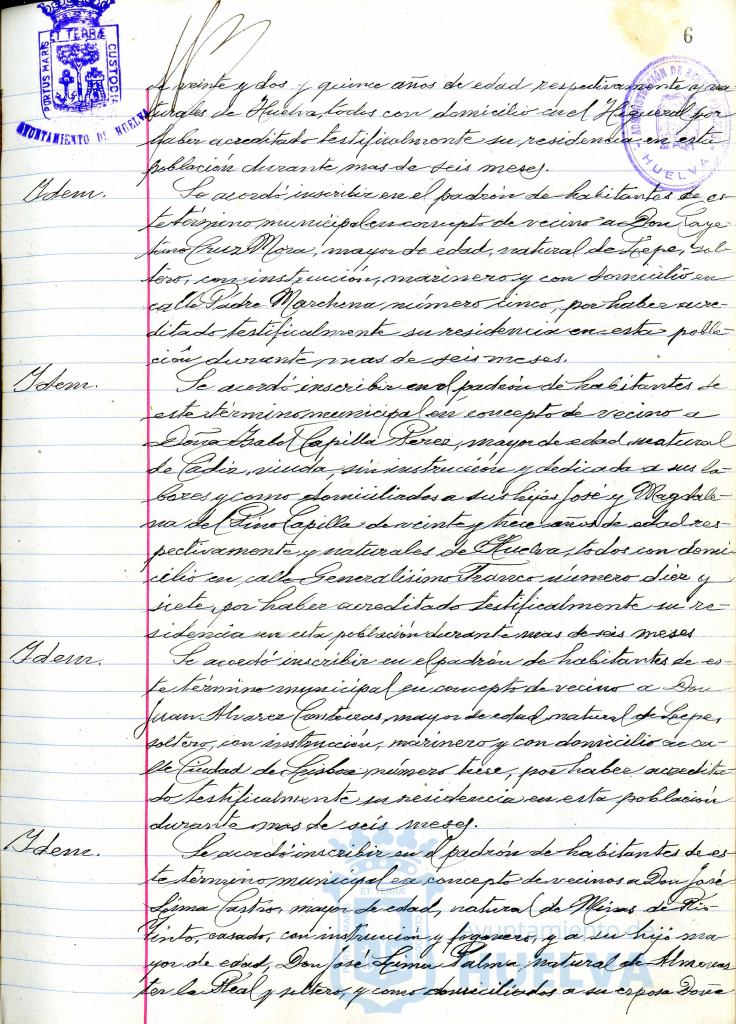 6
PORTUS MARIS ET TERRÆ CUSTODIA
AYUNTAMIENTO DE HUELVA
HUELVA
de veinte y dos y quince años de edad respectivamente y na-
turales de Huelva, todos con domicilio en el Higueral por
haber acreditado testificalmente su residencia en esta
población durante mas de seis meses.
Idem.
Se acordó inscribir en el padrón de habitantes de es-
te término municipal en concepto de vecino a Don Caye-
tano Cruz Mora, mayor de edad, natural de Lepe, sol-
tero, con instrucción, marinero y con domicilio en
calle Padre Marchena número cinco, por haber acre-
ditado testificalmente su residencia en esta pobla-
ción durante mas de seis meses.
Idem.
Se acordó inscribir en el padrón de habitantes de
este término municipal en concepto de vecino a
Doña Isabel Capilla Perez, mayor de edad, natural
de Cadiz, viuda, sin instrucción y dedicada a sus la-
bores y como domiciliados a sus hijos José y Magdale-
na del Pino Capilla de veinte y trece años de edad res-
pectivamente y naturales de Huelva, todos con domi-
cilio en calle Generalisimo Franco número diez y
siete, por haber acreditado testificalmente su re-
sidencia en esta población durante mas de seis meses
Idem.
Se acordó inscribir en el padrón de habitantes de es-
te término municipal en concepto de vecino a Don
Juan Alvarez Contreras, mayor de edad, natural de Lepe,
soltero, con instrucción, marinero y con domicilio en ca-
lle Ciudad de Lisboa número trece, por haber acredita-
do testificalmente su residencia en esta población
durante mas de seis meses.
Idem.
Se acordó inscribir en el padrón de habitantes de es-
te término municipal en concepto de vecinos a Don José
Lima Castro, mayor de edad, natural de Minas de Rio-
tinto, casado, con instrucción y fogonero, y a su hijo ma-
yor de edad, Don José Lima Palma, natural de Almonas-
ter la Real y soltero, y como domiciliados a su esposa Doña
Ayuntamiento de
HUELVA